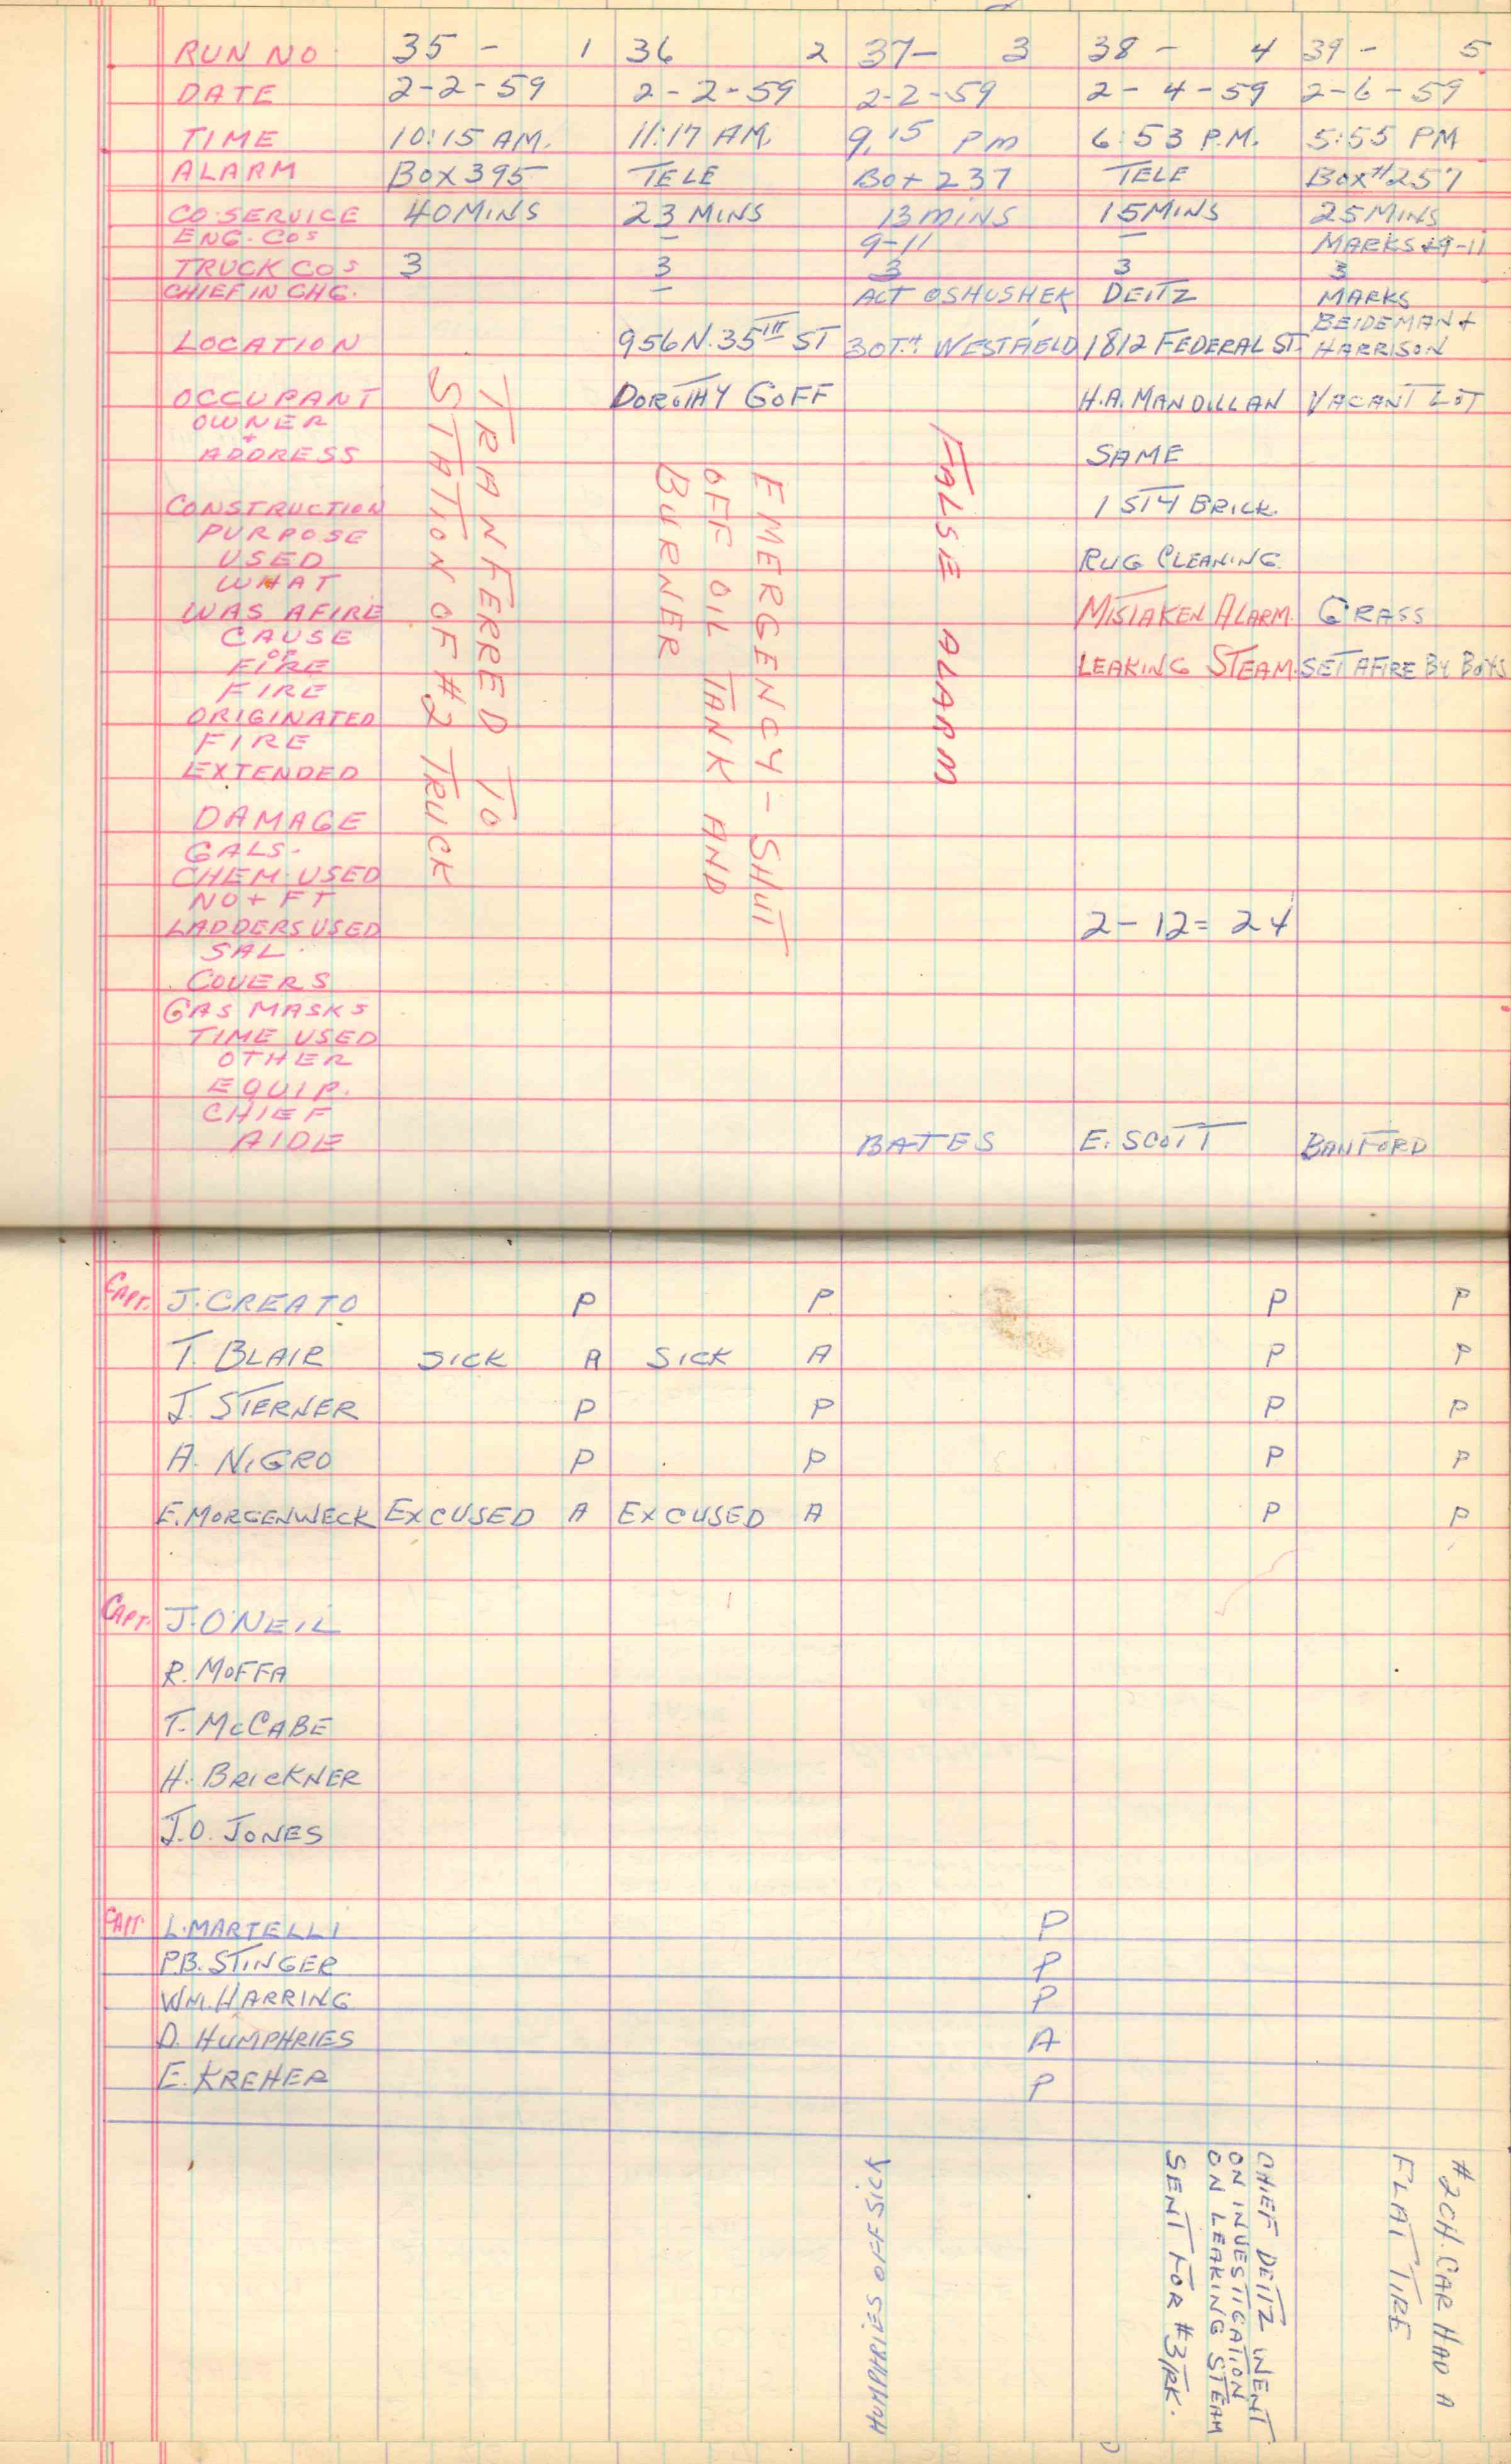 RUN NO. 35 - 1 36 2 37- 3 38 - 4 39 - 5
DATE 2-2-59 2-2-59 2-2-59 2-4-59 2-6-59
TIME 10:15 AM. 11:17 AM. 9,15 Pm 6:53 P.M. 5:55 PM
ALARM BOX 395 TELE BOX 237 TELE BOX #257
CO. SERVICE 40 MINS 23 MINS 13 MINS 15 MINS 25 MINS
ENG. COS - 9-11 - MARKS + 9-11
TRUCK COS 3 3 3 3 3
CHIEF IN CHG. - ACT OSHUSHEK DEITZ MARKS
LOCATION 956 N. 35TH ST 30TH WESTFIELD 1812 FEDERAL ST. BEIDEMAN + HARRISON
OCCUPANT DOROTHY GOFF H.A. MANDILLAN VACANT LOT
OWNER
+
ADDRESS SAME
CONSTRUCTION 1 STY BRICK.
PURPOSE
USED RUG CLEANING
WHAT
WAS AFIRE MISTAKEN ALARM. GRASS
CAUSE
OF
FIRE LEAKING STEAM. SET AFIRE BY BOYS
FIRE
ORIGINATED
FIRE
EXTENDED
DAMAGE
GALS.
CHEM. USED
NO + FT
LADDERS USED 2-12= 24
SAL.
COVERS
GAS MASKS
TIME USED
OTHER
EQUIP.
CHIEF
AIDE BATES E. SCOTT BANFORD
TRANFERRED TO
STATION OF #2 TRUCK
EMERGENCY - SHUT
OFF OIL TANK AND
BURNER
FALSE ALARM
CAPT. J. CREATO P P P P
T. BLAIR SICK A SICK A P P
J. STERNER P P P P
A. NIGRO P P P P
E. MORGENWECK EXCUSED A EXCUSED A P P
CAPT. J. O'NEIL
R. MOFFA
T. McCABE
H. BRICKNER
J.O. JONES
CAPT. L. MARTELLI P
P.B. STINGER P
WM. HARRING P
D. HUMPHRIES A
E. KREHER P
HUMPHRIES OFF SICK
CHIEF DEITZ WENT
ON INVESTIGATION
ON LEAKING STEAM
SENT FOR #3 TRK.
#2 CH. CAR HAD A
FLAT TIRE